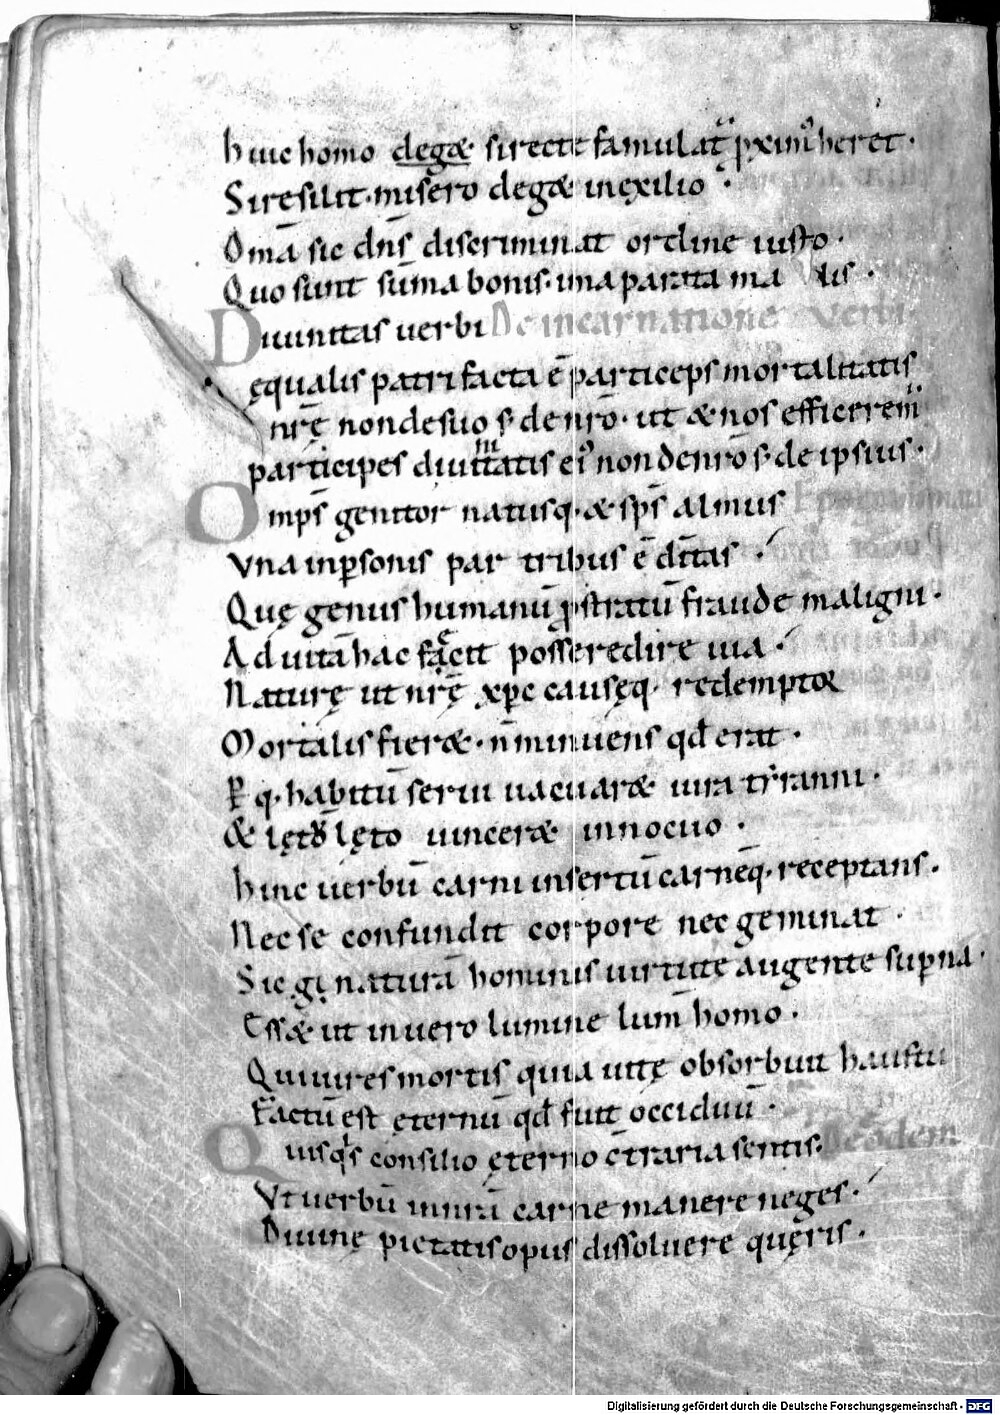 huic homo degæ. si recte famulatᷣ ꝓximꝰ heret.
Si resilit. misero degæ in exilio.
Om̄a sic dn̄s discriminat ordine iusto.
Quo sunt sūma bonis. ima parata ma lis.
Diuinitas uerbi De incarnatione Verbi.
ęqualis patri facta ē particeps mortalitatis
nr̄ę non de suo s; de nr̄o. ut & nos efficerem̄
participes diuinitatis eiꝰ non de nr̄o s; de ipsius.
Omp̄s genitor natusq. & sp̄s almus
Vna in ꝑsonis par tribus ē dītas.
Quę genus humanū ꝓstratū fraude maligni.
Ad uitā hac facit posse redire uia.
Naturę ut nr̄ę xp̄c causęq. redemptor
Mortalis fieræ. n̄ minuens qd̄ erat.
Per q. habitū serui uacuaræ iura tẏranni.
& lęto uinceræ innocuo.
hinc uerbū carni insertū carnēq. receptans.
Nec se confundit corpore nec geminat.
Sic gi naturā hominis uirtute augente suꝑna.
Essæ ut in uero lumine lum̄ homo.
Qui uires mortis quia uitę obsorbuit haustu
Factū est ęternū qd̄ fuit occiduū.
Quisqͥs consilio ęterno c̄traria sentis. De eodem
Vt uerbū in nr̄a carne manere neges.
Diuinę pietatis opus dissoluere quęris.